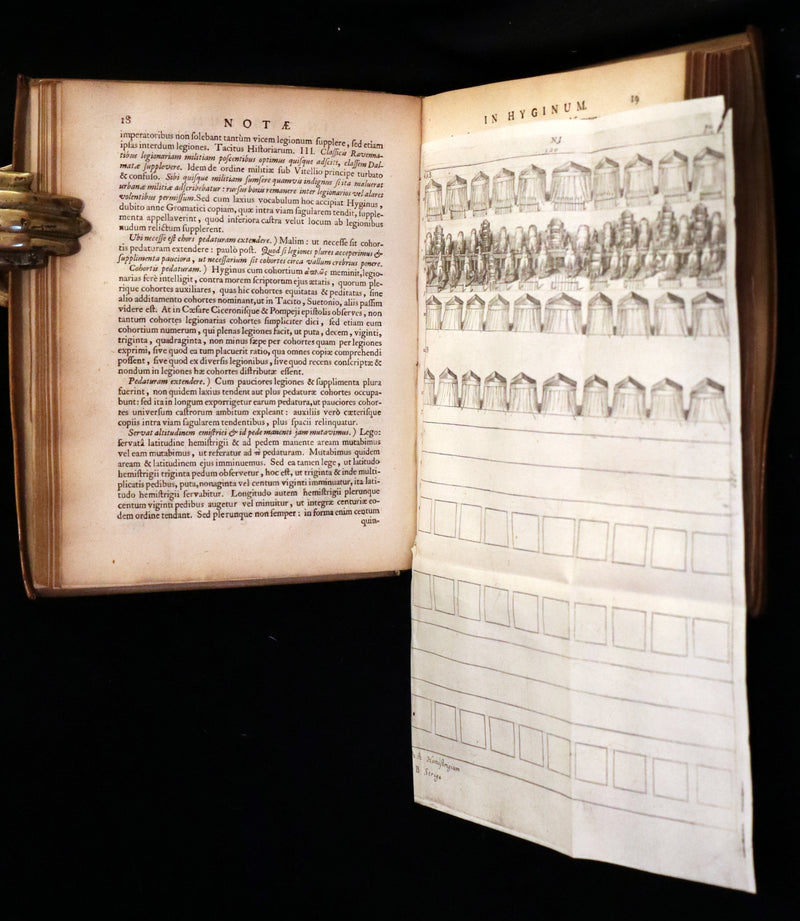 18 NOTÆ
imperatoribus non solebant tantùm vicem legionum supplere, sed etiam
ipsas interdum legiones. Tacitus Historiarum. III. Classica Ravenna-
tibus legionariam militiam poscentibus optimus quisque adsciti, classem Dal-
matæ supplevere. Idem de ordine militiæ sub Vitellio principe turbato
& confuso. Sibi quisque militiam sumsere quamvis indignus si ita maluerat
urbanæ militiæ adscribebatur: rursus bonis remanere inter legionarios vel alares
volentibus permissum. Sed cum laxius vocabulum hoc accipit Hyginus,
dubito anne Gromatici copiam, quæ intra viam sagularem tendit, supple-
menta appellaverint, quod inferiora castra velut locum ab legionibus
nudum relictum supplerent.
Ubi necesse est chors pedaturam extendere.) Malim: ut necesse sit cohor-
tis pedaturam extendere: paulò post. Quod si legiones plures acceperimus &
supplimenta pauciora, ut necessarium sit cohortes circa vallum crebrius ponere.
Cohortis pedaturam.) Hyginus cum cohortium meminit, legio-
narias ferè intelligit, contra morem scriptorum ejus ætatis, quorum ple-
rique cohortes auxiliares, quas hic cohortes equitatas & peditatas, sine
alio additamento cohortes nominant, ut in Tacito, Suetonio, aliis passim
videre est. At in Cæsare Ciceronisque & Pompeji epistolis observes, non
tantum cohortes legionarias cohortes simpliciter dici, sed etiam eum
cohortium numerum, qui plenas legiones facit, ut puta, decem, viginti,
triginta, quadraginta, non minus sæpe per cohortes quam per legiones
exprimi, sive quod ea tum placuerit ratio, qua omnes copiæ comprehendi
possent, sive quod ex diversis legionibus, sive quod recens conscriptæ &
nondum in legiones hæ cohortes distributæ essent.
Pedaturam extendere.) Cum pauciores legiones & supplimenta plura
fuerint, non quidem laxius tendent aut plus pedaturæ cohortes occupa-
bunt: sed ita in longum exporrigetur earum pedatura, ut pauciores cohor-
tes universum castrorum ambitum expleant: auxiliis verò cæterisque
copiis intra viam sagularem tendentibus, plus spacii relinquatur.
Servat altitudinem emistrici & id pede manente jam mutavimus.) Lego:
servatâ latitudine hemistrigii & ad pedem manente aream mutabimus
vel eam mutabimus, ut referatur ad pedaturam. Mutabimus quidem
aream & latitudinem ejus imminuemus. Sed ea tamen lege, ut latitudo
hemistrigii triginta pedum observetur, hoc est, ut triginta & inde multi-
plicatis pedibus, puta, nonaginta vel centum viginti imminuatur, ita lati-
tudo hemistrigii servabitur. Longitudo autem hemistrigii plerunque
centum viginti pedibus augetur vel minuitur, ut integræ centuriæ eo-
dem ordine tendant. Sed plerunque non semper: in forma enim centum
quin-
IN HYGINUM. 19
N.I.
A Hemistrigium
B Striga